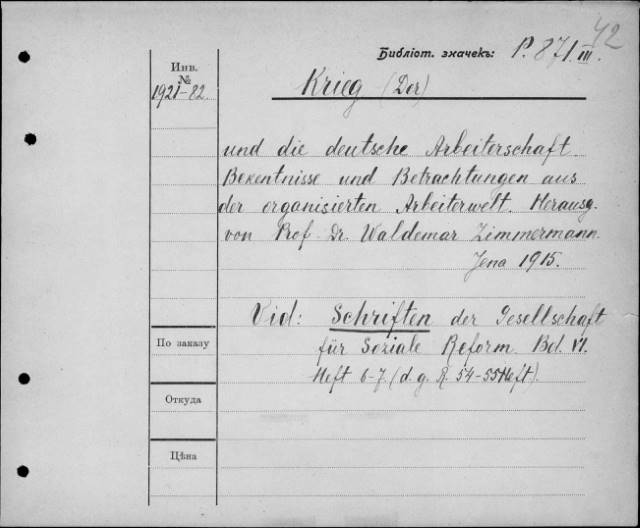 42
Библіот. значекъ: P. 871. III.
Инв.
№
1921-82.
Krieg (Der)
und die deutsche Arbeiterschaft.
Bekentnisse und Betrachtungen aus
der organisierten Arbeiterwelt. Herausg.
von Prof. Dr. Waldemar Zimmermann.
Jena 1915.
Vid: Schriften der Gesellschaft
für Soziale Reform. Bd. VI.
Heft 6-7. (d. g. R. 54-55 Heft).
По заказу
Откуда
Цѣна